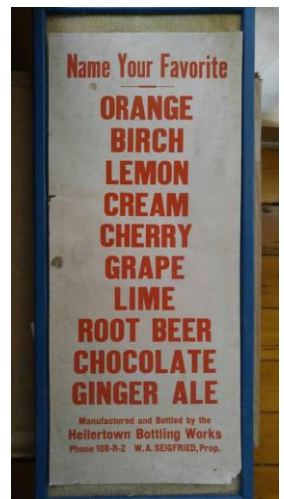 Name Your Favorite
ORANGE
BIRCH
LEMON
CREAM
CHERRY
GRAPE
LIME
ROOT BEER
CHOCOLATE
GINGER ALE
Manufactured and Bottled by the
Hellertown Bottling Works
Phone 108-R-2 W. A. SEIGFRIED, Prop.